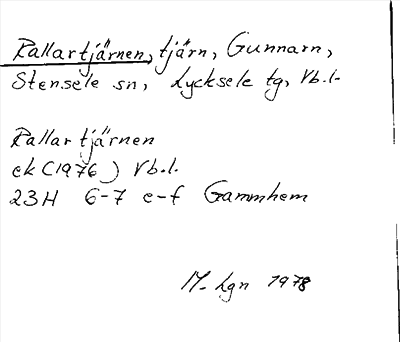 Rallartjärnen, tjärn, Gunnarn,
Stensele sn, Lycksele tg, Vb.l.
Rallartjärnen
ek (1976) Vb.l.
23H 6-7 e-f Gammhem
M-Lgn 1978